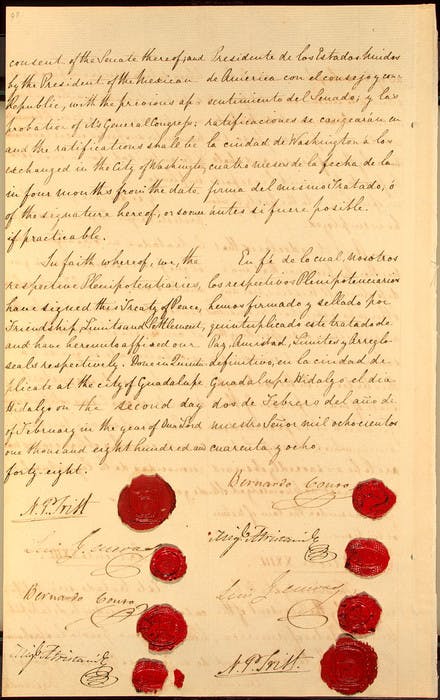 consent of the Senate thereof; and
by the President of the Mexican
Republic, with the previous ap-
probation of its General Congress;
and the ratifications shall be
exchanged in the City of Washington,
in four months from the date
of the signature hereof, or sooner
if practicable.
In faith whereof, we, the
respective Plenipotentiaries,
have signed this Treaty of Peace,
Friendship, Limits and Settlement,
and have hereunto affixed our
seals respectively. Done in Quintu-
plicate at the city of Guadalupe
Hidalgo on the second day
of February in the year of Our Lord
one thousand eight hundred and
forty-eight.
N. P. Trist
Luis G. Cuevas
Bernardo Couto
Migl Atristain
Presidente de los Estados Unidos
de América con el consejo y con-
sentimiento del Senado; y las
ratificaciones se cangearán en
la ciudad de Washington a los
cuatro meses de la fecha de la
firma del mismo Tratado, ó
antes si fuere posible.
En fé de lo cual, nosotros
los respectivos Plenipotenciarios
hemos firmado y sellado por
quintuplicado este tratado de
Paz, Amistad, Límites y Arreglo
definitivo, en la ciudad de
Guadalupe Hidalgo el dia
dos de Febrero del año de
nuestro Señor mil ochocientos
cuarenta y ocho.
Bernardo Couto
Migl Atristain
Luis G. Cuevas
N. P. Trist.